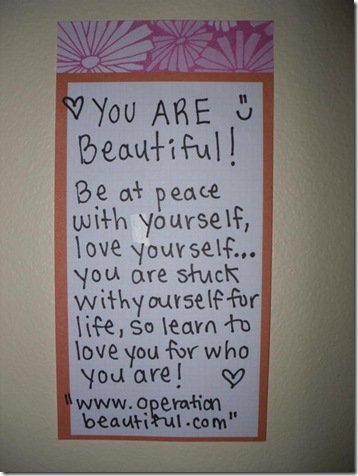 ♡ YOU ARE
Beautiful!
Be at peace
with yourself,
love yourself...
you are stuck
with yourself for
life, so learn to
love you for who
you are! ♡
"www.operation
beautiful.com"